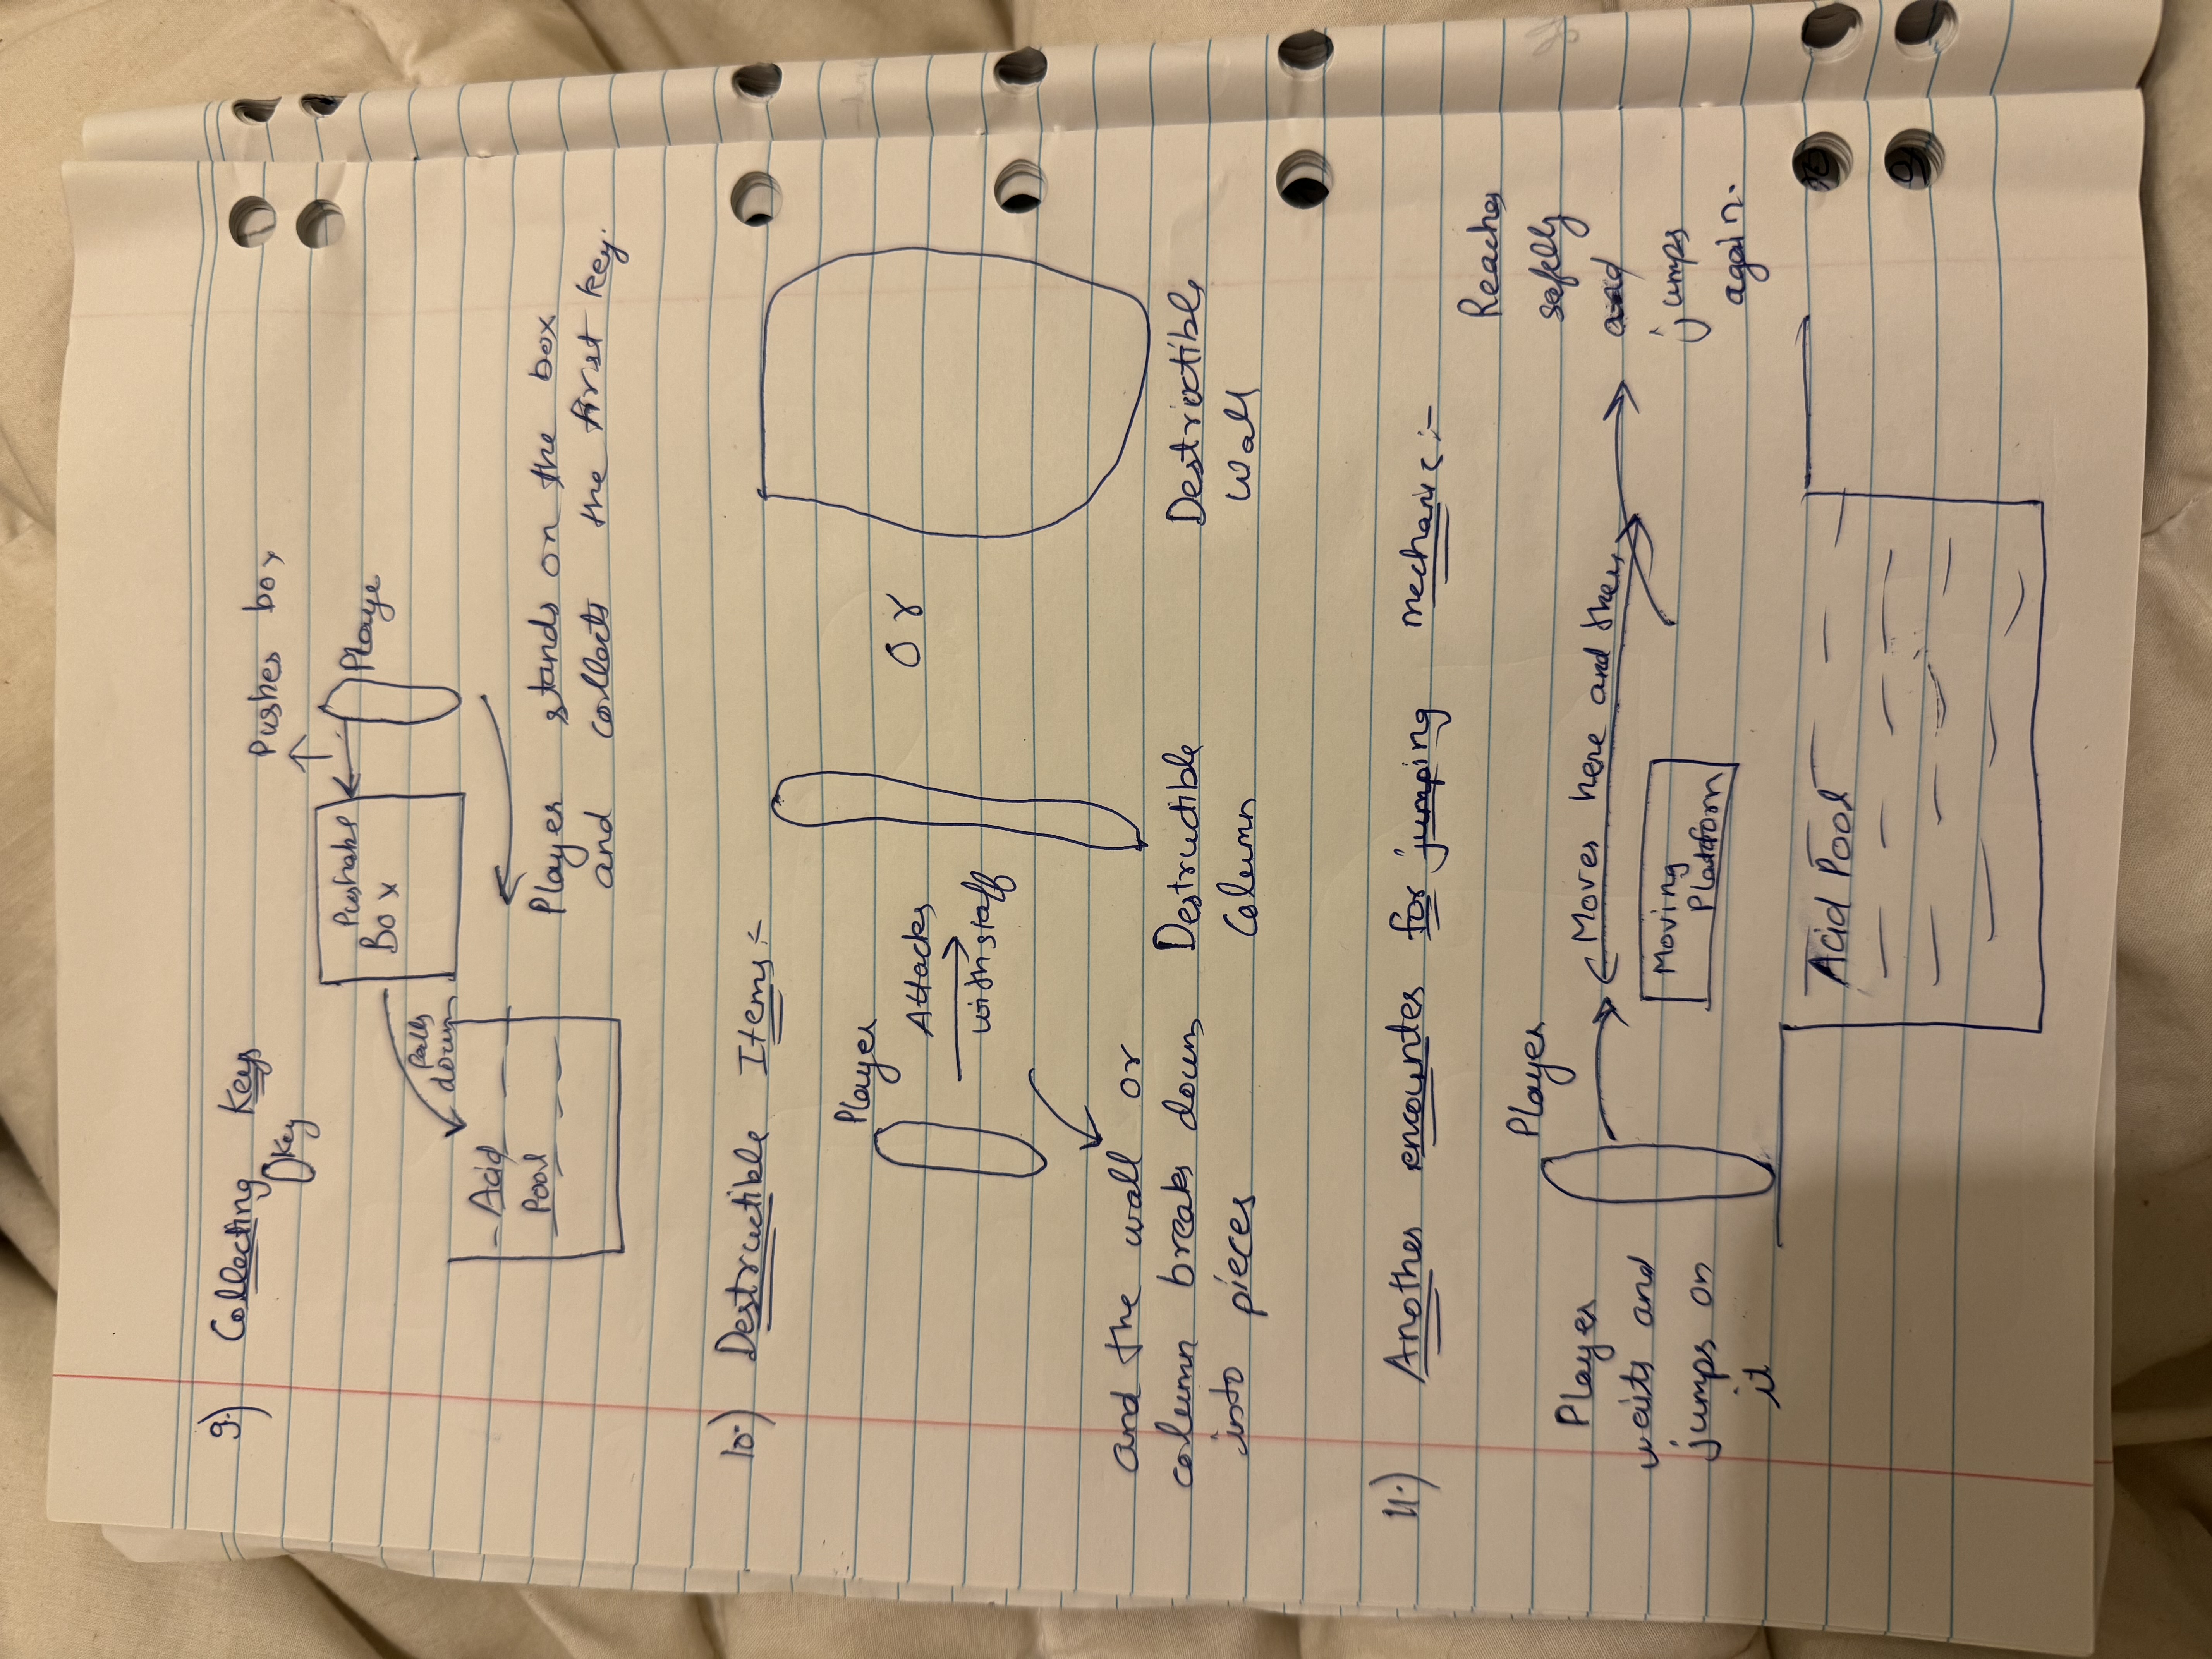 9.) Collecting Keys
Key
Pushes box
Pushabl
Box
Playe
falls
down
Acid
Pool
Player stands on the box
and collects the first key.
10.) Destructible Items :-
Player
Attacks
with staff
Or
and the wall or
column breaks down
into pieces
Destructible
Column
Destructible
Wall
11.) Another encounter for jumping mechanic :-
Player
waits and
jumps on
it
Player
Moves here and
Moving
Platform
Reaches
safely
and
jumps
again.
Acid Pool